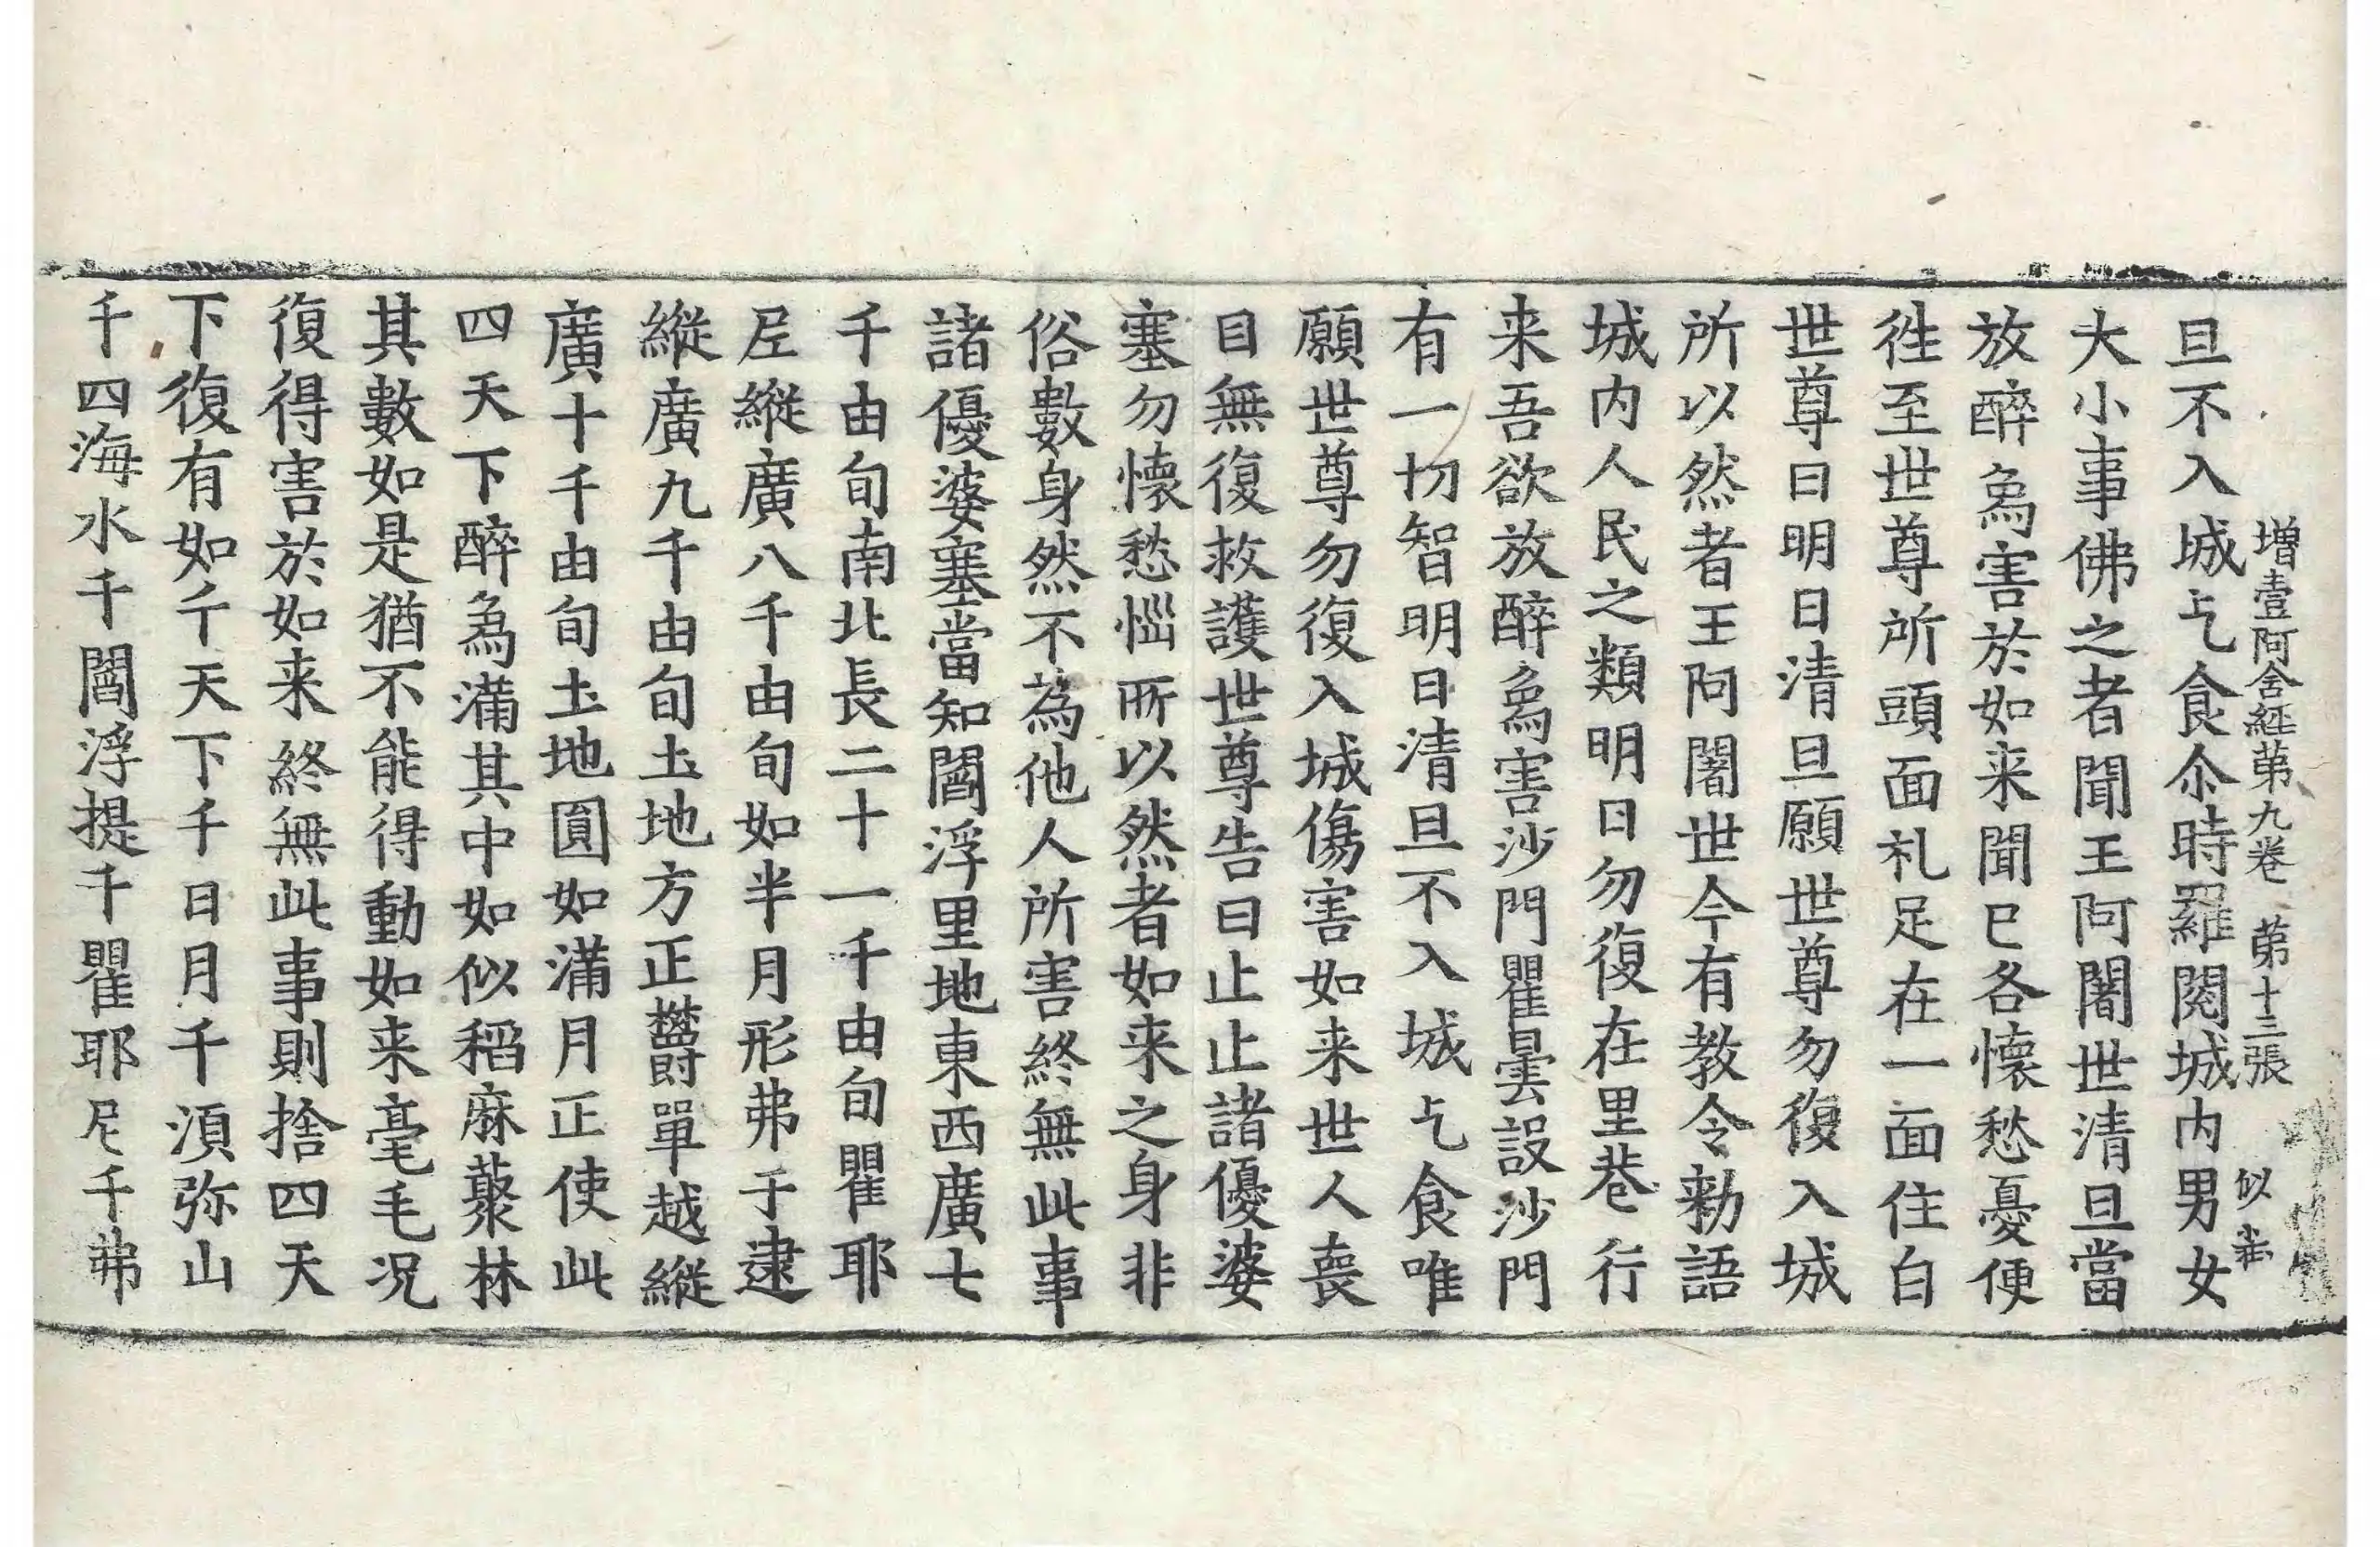 旦不入城乞食尒時羅閱城内男女
增壹阿含經苐九卷 苐十三張 似
大小事佛之者聞王阿闍世清旦當
放醉烏害於如来聞已各懷愁憂便
徃至世尊所頭面礼足在一面住白
世尊曰明日清旦願世尊勿復入城
所以然者王阿闍世今有教令勑語
城内人民之類明日勿復在里巷行
来吾欲放醉烏害沙門瞿曇設沙門
有一切智明日清旦不入城乞食唯
願世尊勿復入城傷害如来世人喪
目無復救護世尊告曰止止諸優婆
塞勿懷愁惱所以然者如来之身非
俗數身然不為他人所害終無此事
諸優婆塞當知閻浮里地東西廣七
千由旬南北長二十一千由旬瞿耶
尼縱廣八千由旬如半月形弗于逮
縱廣九千由旬土地方正欝單越縱
廣十千由旬土地圓如滿月正使此
四天下醉烏滿其中如似稻麻藂林
其數如是猶不能得動如来毫毛况
復得害於如来終無此事則捨四天
下復有如千天下千日月千湏弥山
千四海水千閻浮提千瞿耶尼千弗